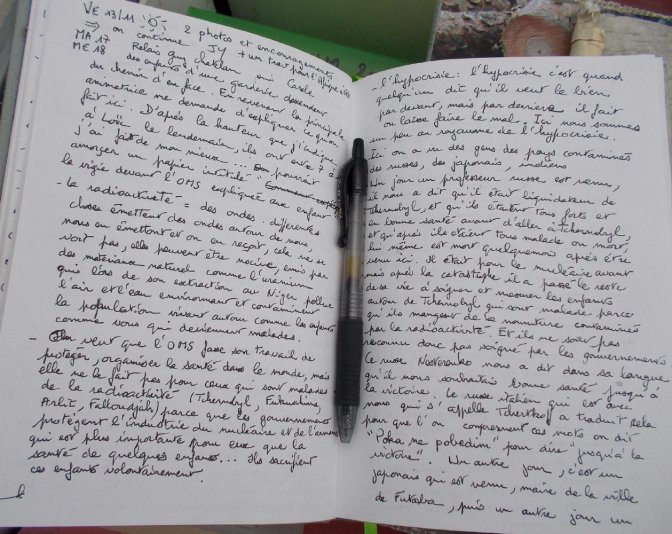 VE 13/11 2 photos et encouragements
⇒ on continue JY + un trait pour l'Afrique
MA 17 Relais Guy chetclan oui Carole
ME 18 des enfants d'une garderie descendent
du chemin d'en face. En revenant la principale
animatrice me demande d'expliquer ce qu'on
fait ici. D'après la hauteur que j'indique
à Loïc le lendemain, ils ont entre 7 à
j'ai fait de mon mieux... pourrait
amorcer un papier intitulé "Comment
la vigie devant l'OMS expliquée aux enfants
- la radioactivité = des ondes. différentes
choses émettent des ondes autour de nous,
nous en émettons et on en reçoit, cela ne se
voit pas, elles peuvent être nocives, émis par
des matériaux naturel comme l'uranium
qui lors de son extraction au Niger pollue
l'air et l'eau environnant et contaminent
la population vivant autour comme les enfants
comme vous qui deviennent malades.
- On veut que l'OMS fasse son travail de
protéger, organiser la santé dans le monde, mais
elle ne le fait pas pour ceux qui sont malades
de la radioactivité (Tchernobyl, Fukushima,
Arlit, Falloudjah) parce que les gouvernements
protègent l'industrie du nucléaire et de l'armement
qui est plus importante pour eux que la
santé de quelques enfants... Ils sacrifient
ces enfants volontairement.
- l'hypocrisie : l'hypocrisie c'est quand
quelqu'un dit qu'il veut le bien
par devant, mais par derrière il fait
ou laisse faire le mal. Ici nous sommes
un peu au royaume de l'hypocrisie.
Ici on a vu des gens des pays contaminés
des russes, des japonais, indiens
Un jour un professeur russe est venu,
il nous a dit qu'il était liquidateur de
Tchernobyl, et qu'ils étaient tous forts et
en bonne santé avant d'aller à Tchernobyl
et qu'après ils étaient tous malade ou mort,
lui même est mort quelques mois après être
venu ici. Il était pour le nucléaire avant
mais après la catastrophe il a passé le reste
de sa vie à soigner et mesurer les enfants
autour de Tchernobyl qui sont malade parce
qu'ils mangent de la nourriture contaminée
par la radioactivité. Et ils ne sont pas
reconnu donc pas soigné par les gouvernements.
Le russe Nesterenko nous a dit dans sa langue
qu'il nous souhaitait bonne santé jusqu'à
la victoire. Le russe italien qui est avec
nous qui s'appelle Tchertkoff a traduit cela
pour que l'on comprennent ces mots on dit
"Poka ne pobedim" pour dire "jusqu'à la
victoire". Un autre jour, c'est un
japonais qui est venu, maire de la ville
de Futaba, puis un autre jour un